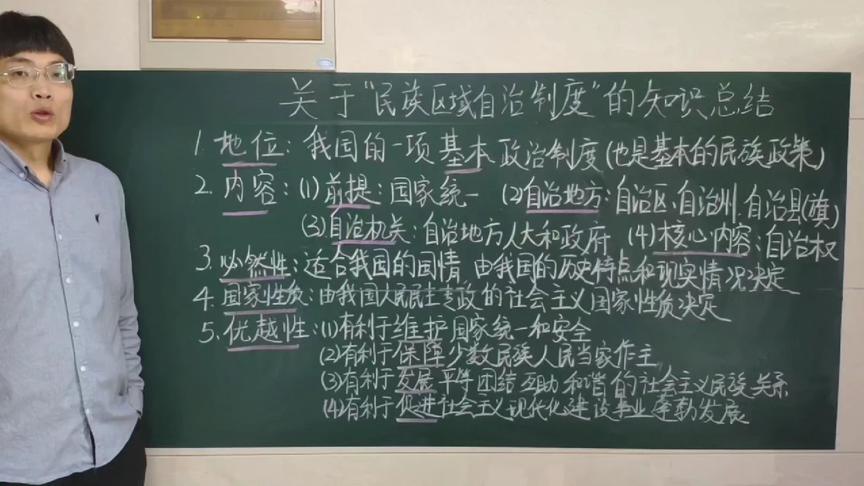 关于“民族区域自治制度”的知识总结
1. 地位：我国的一项基本政治制度(也是基本的民族政策)
2. 内容：(1)前提：国家统一 (2)自治地方：自治区.自治州.自治县(旗)
(3)自治机关：自治地方人大和政府 (4)核心内容：自治权
3. 必然性：适合我国的国情 由我国的历史特点和现实情况决定
4. 国家性质：由我国人民民主专政的社会主义国家性质决定
5. 优越性：(1)有利于维护国家统一和安全
(2)有利于保障少数民族人民当家作主
(3)有利于发展平等团结互助和谐的社会主义民族关系
(4)有利于促进社会主义现代化建设事业蓬勃发展